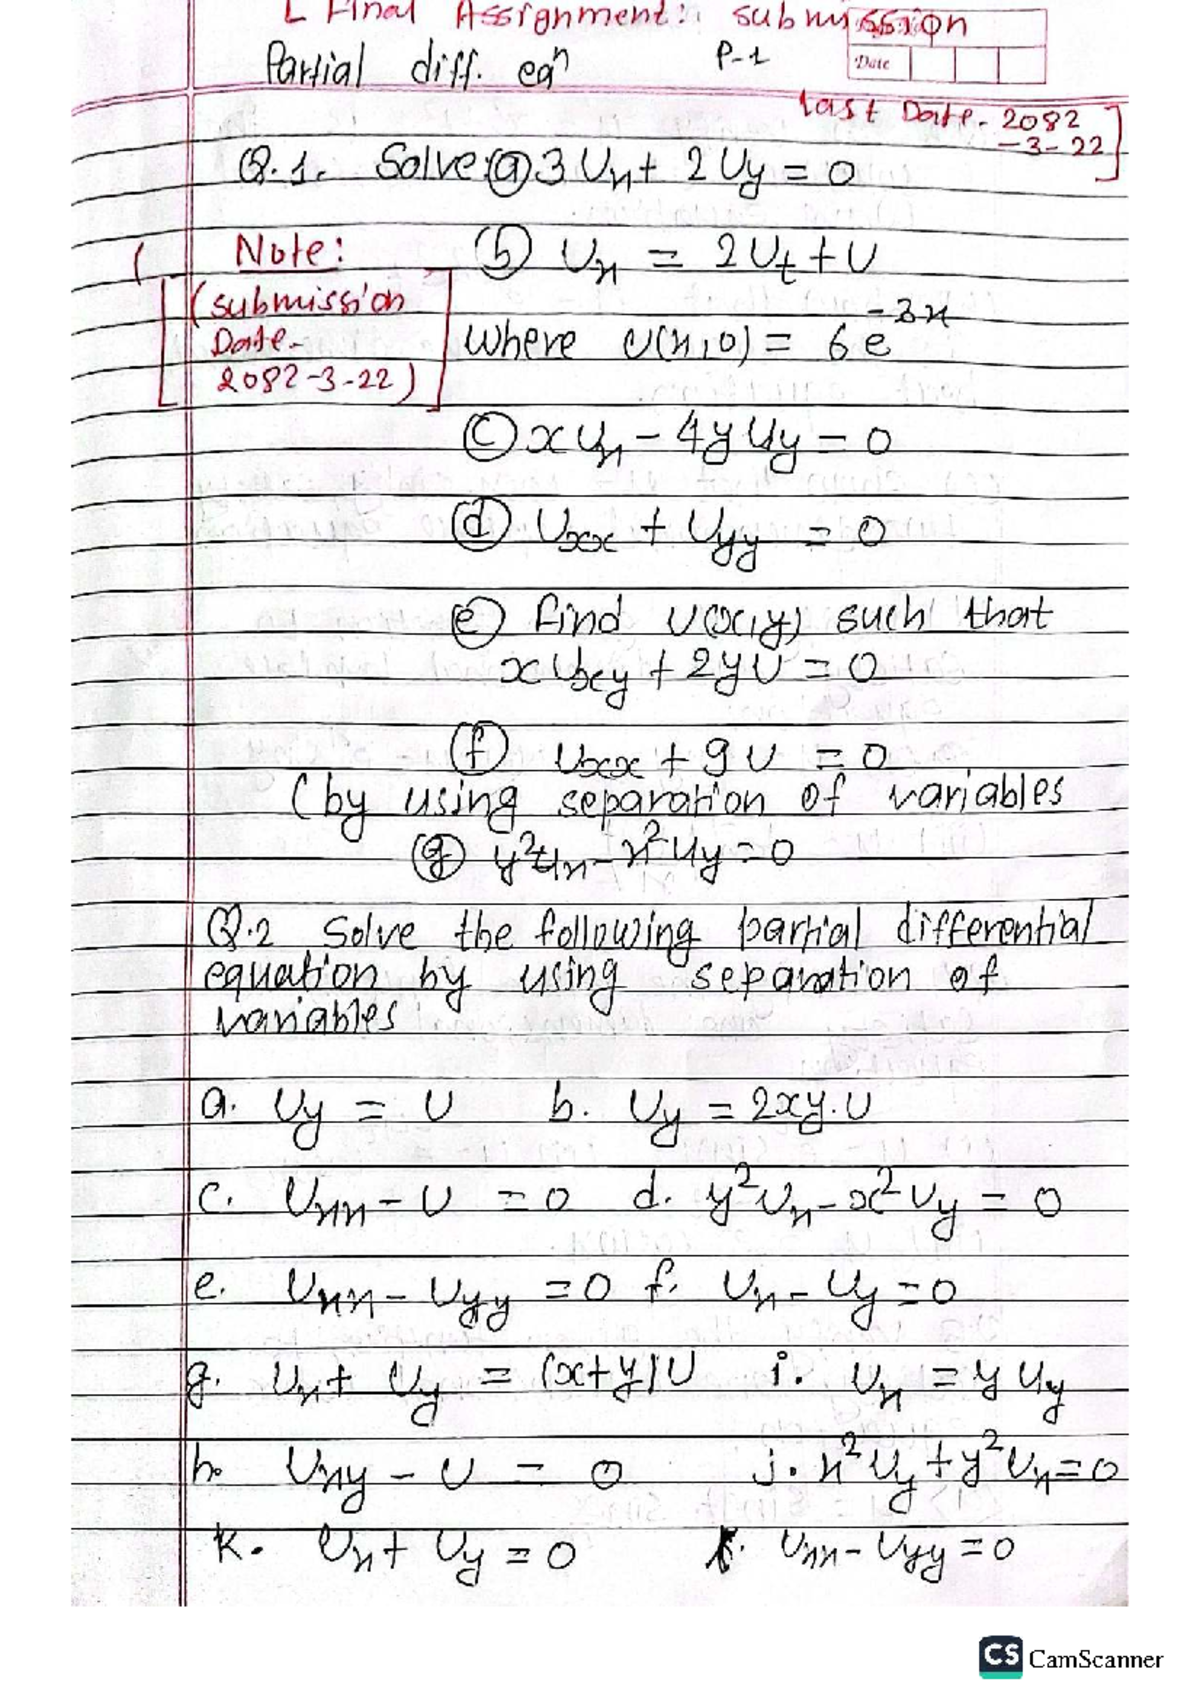 [ Final Assignment: submission
Partial diff. eqⁿ P-1
Date
last Date- 2082
-3-22]
Q.1. Solve: ⓐ 3Ux + 2Uy = 0
Note: ⓑ Ux = 2Ut + U
(submission
Date-
2082-3-22)
where U(x,0) = 6e^-3x
ⓒ xUx - 4yUy = 0
ⓓ Uxx + Uyy = 0
ⓔ find U(x,y) such that
xUxy + 2yU = 0
ⓕ Uxx + 9U = 0
(by using separation of variables
ⓖ y²Ux - x²Uy = 0
Q.2 Solve the following partial differential
equation by using separation of
variables
a. Uy = U b. Uy = 2xy.U
c. Uxx - U = 0 d. y²Ux - x²Uy = 0
e. Uxx - Uyy = 0 f. Ux - Uy = 0
g. Ux + Uy = (x+y)U i. Ux = yUy
h. Uxy - U = 0 j. x²Uy + y²Ux = 0
K. Ux + Uy = 0 Uxx - Uyy = 0
CS CamScanner